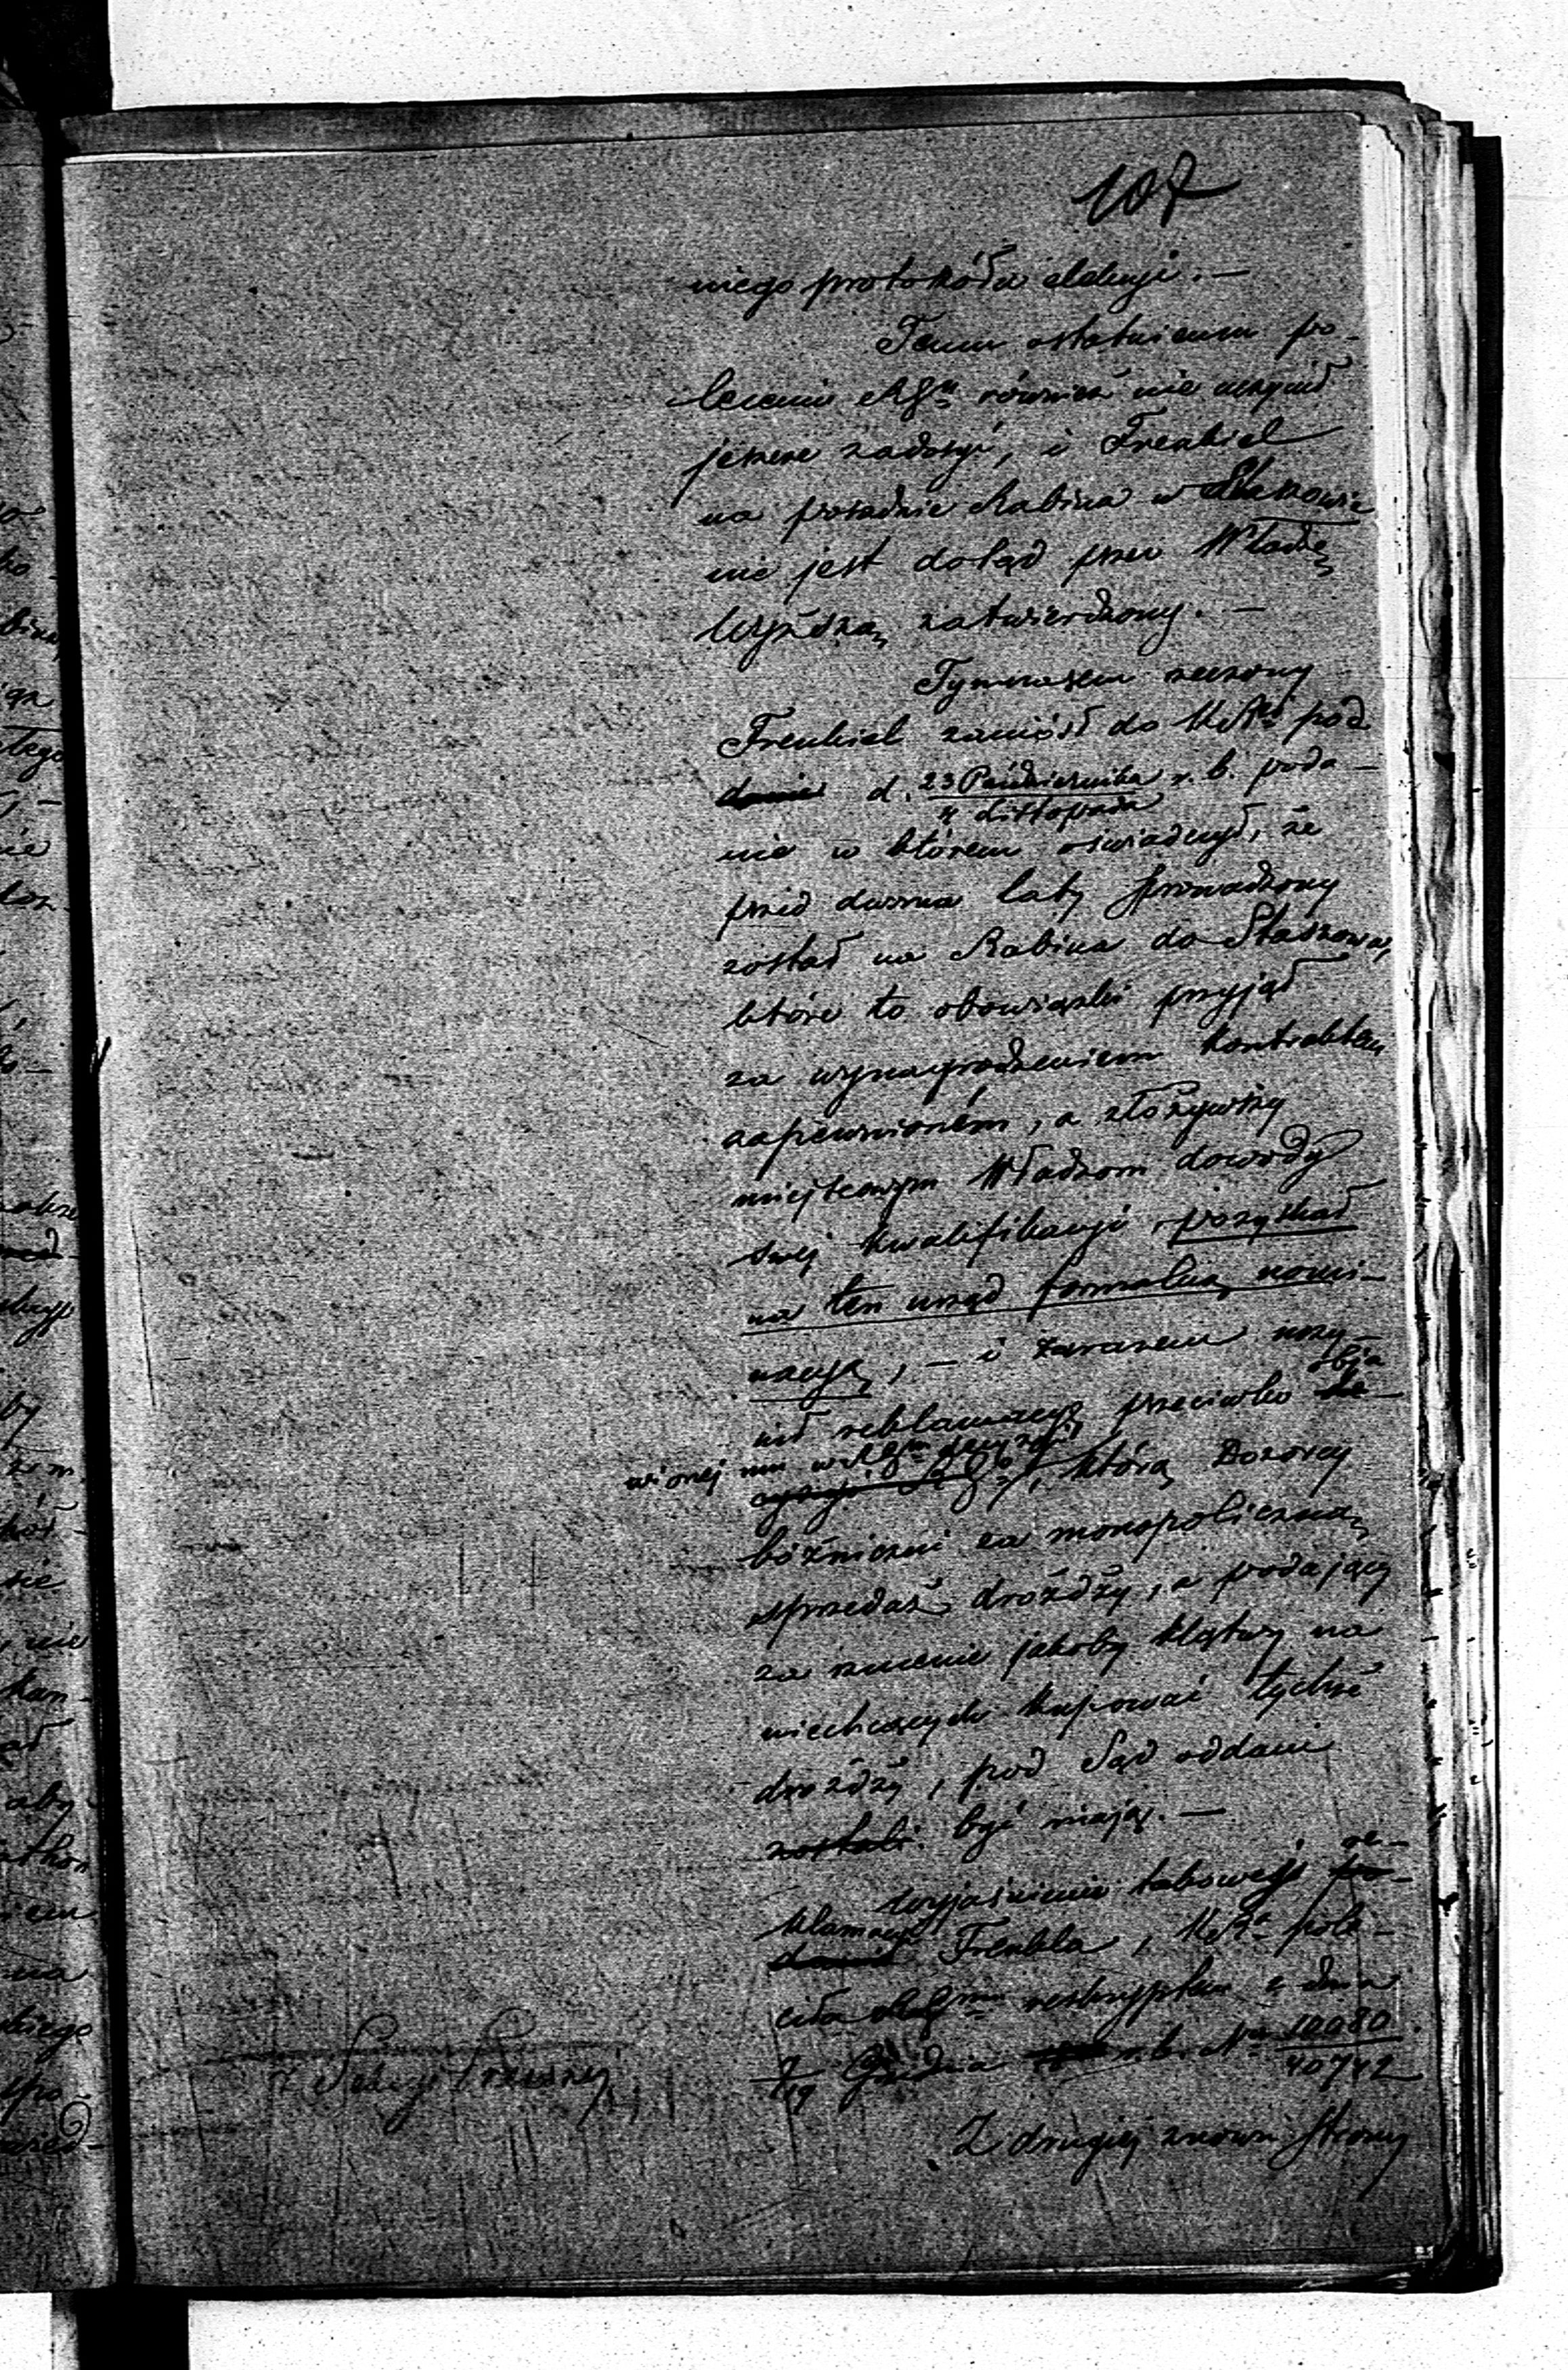 107
niego protokółu elekcji. —
Temu ostatniemu po-
leceniu RGu również nie uczynił
jeszcze zadosyć, i Frenkiel
na posadzie Rabina w Staszowie
nie jest dotąd przez Władzę
Wyższą zatwierdzony. —
Tymczasem rzeczony
Frenkiel zaniósł do KR pod
d. 23 Października r. b. poda-
4 Listopada
nie w którem oświadczył, że
przed dwoma laty sprowadzony
został na Rabina do Staszowa,
które to obowiązki przyjął
za wynagrodzeniem kontraktem
zapewnioném, a złożywszy
miejscowym Władzom dowody
swej kwalifikacji, pozyskał
na ten urząd formalną nomi-
nacyą, — i zarazem uczy-
nił reklamacyą przeciwko obja-
wionej mu decyzji, którą Dozorcy
bóżniczni za monopoliczną
sprzedaż drożdży, a podający
za rzucenie jakoby klątwy na
niechcących kupować tychże
drożdży, pod Sąd oddani
zostali być mają. —
wyjaśnienie takowej re-
klamacyi Frenkla, KR pole-
ciła reskryptem z dnia
7/19 Grudnia r. b. No 10080
40742
Z drugiej znowu strony
z Sekcyi Prawnej